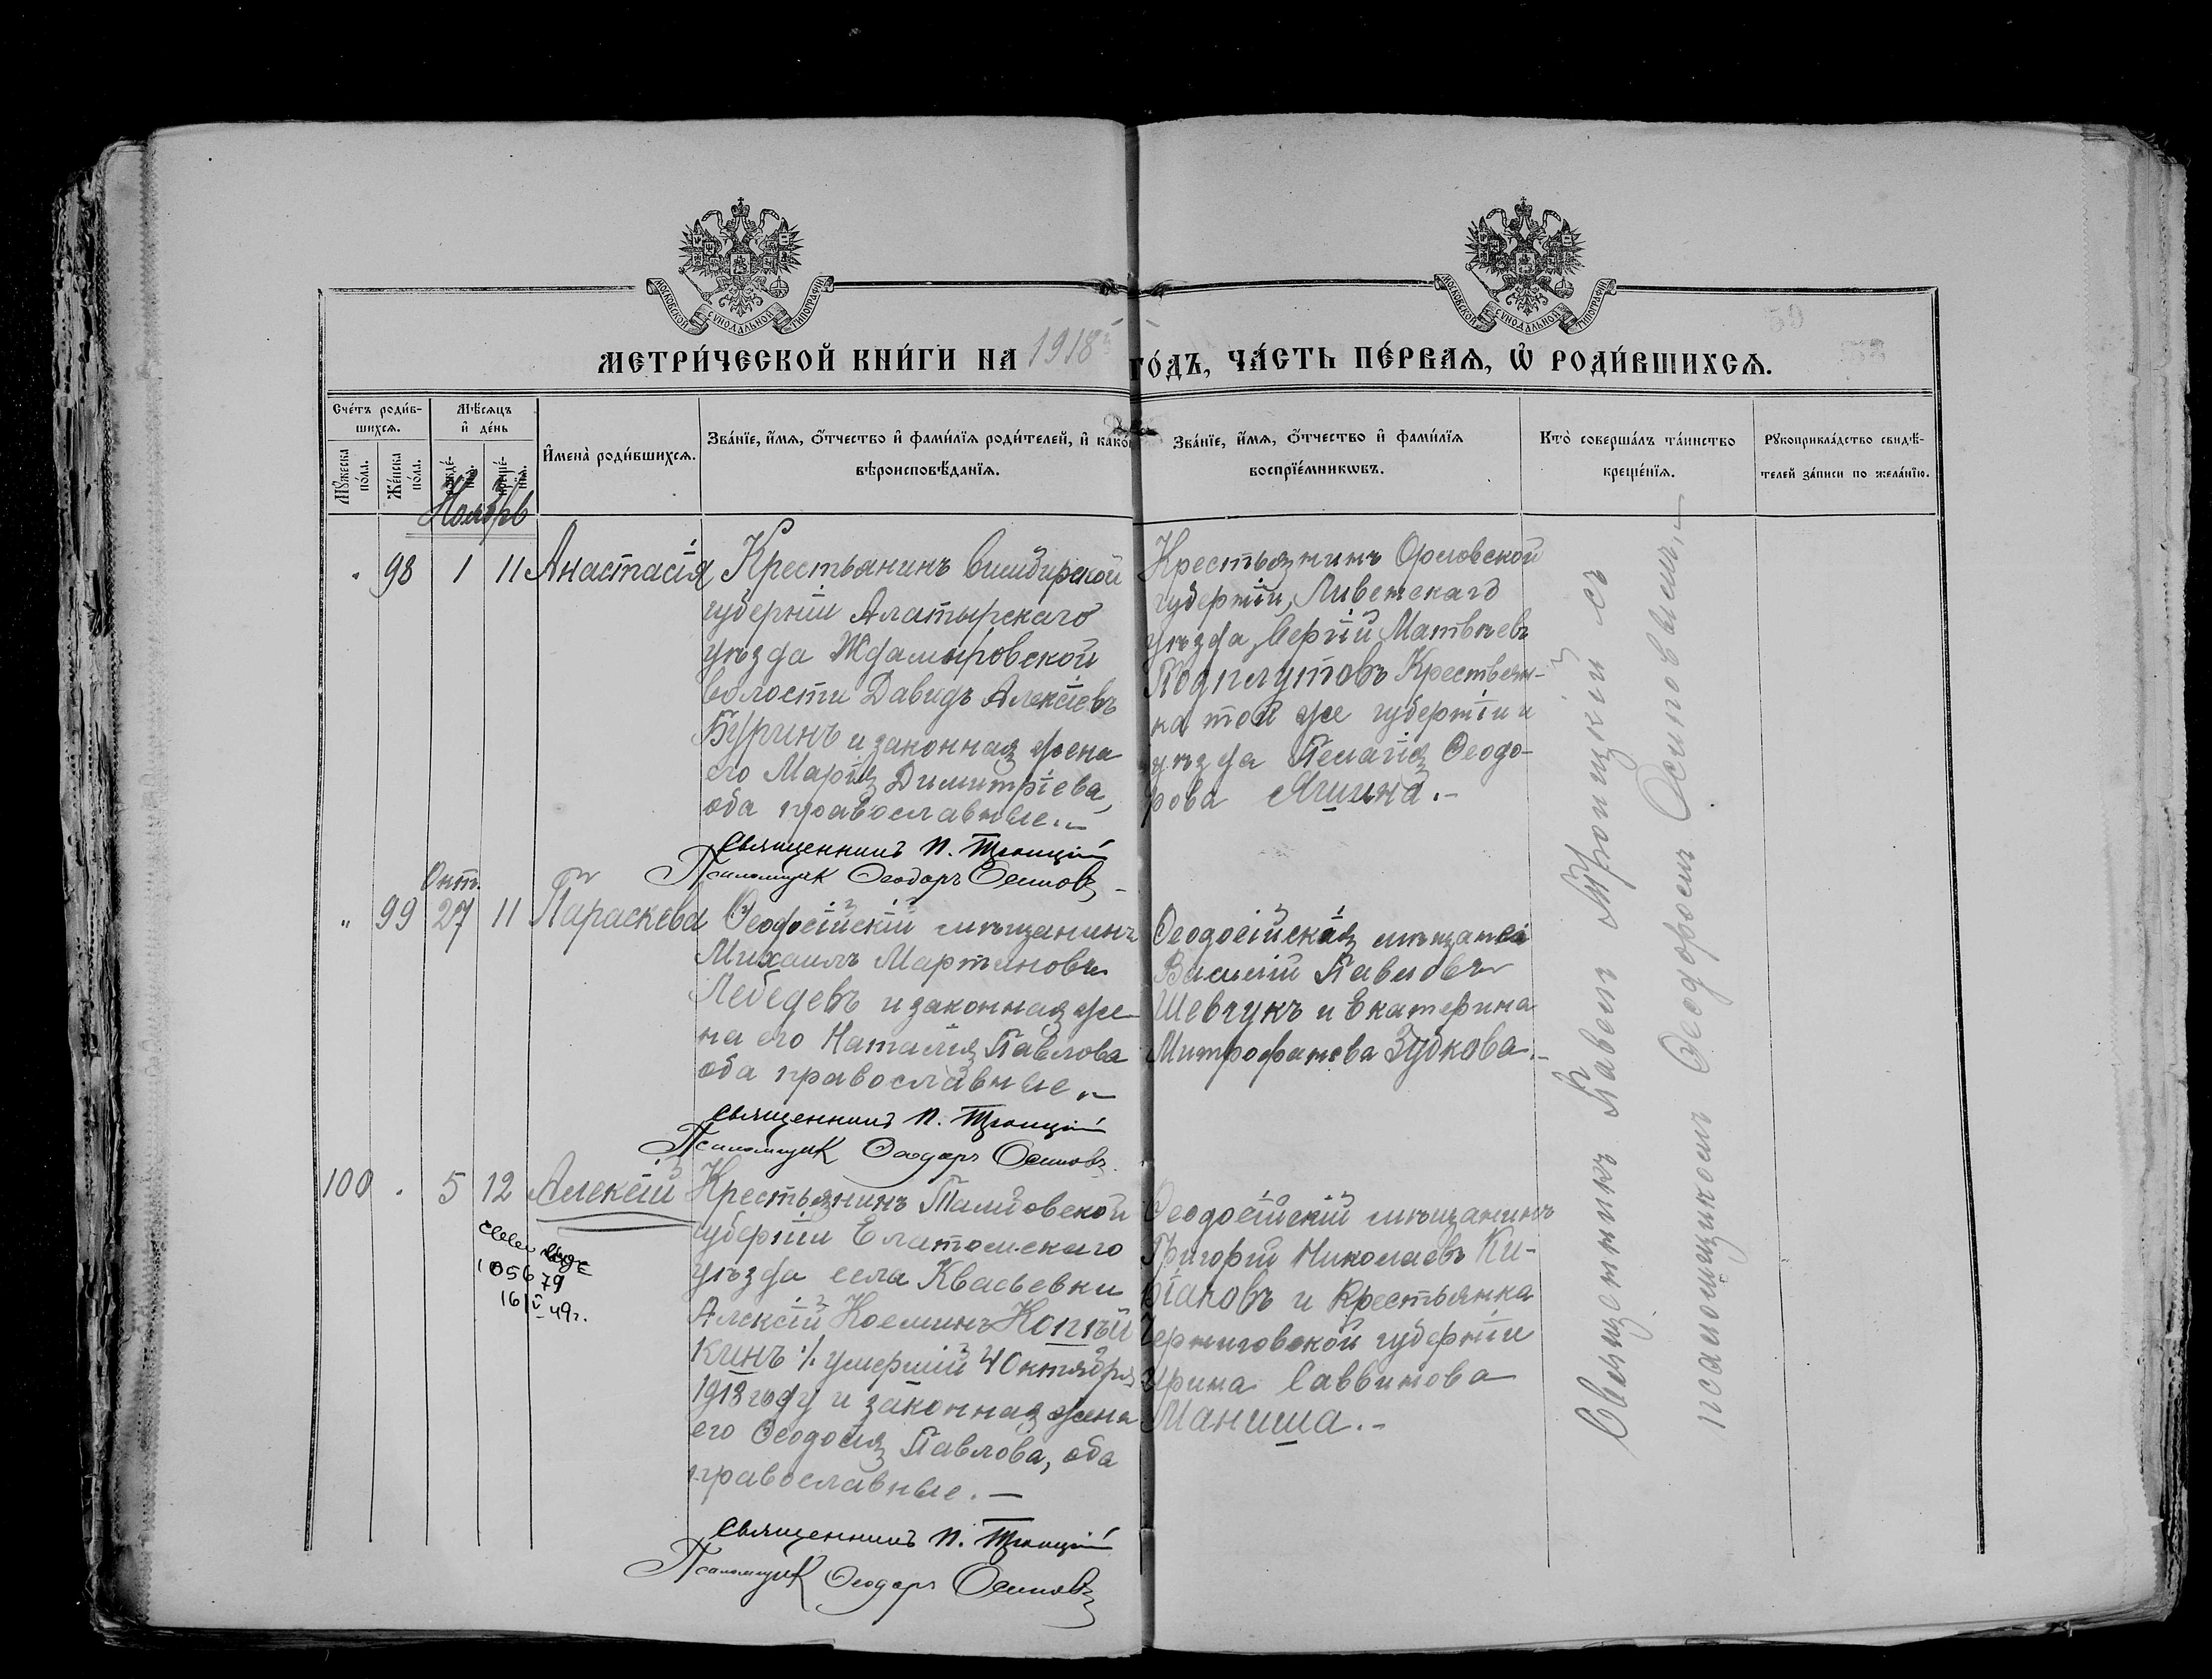 МОСКОВСКОЙ СУНОДАЛЬНОЙ ТИПОГРАФІИ
МОСКОВСКОЙ СУНОДАЛЬНОЙ ТИПОГРАФІИ
МЕТРИ́ЧЕСКОЙ КНИ́ГИ НА 1918й ГО́ДЪ, ЧА́СТЬ ПЕ́РВАѦ, Ѡ РОДИ́ВШИХСѦ.
Сче́тъ роди́в-
шихсѧ.
Мѣ́сѧцъ
и҆ де́нь
И҆мена̀ роди́вшихсѧ.
Зва́нїе, и҆́мѧ, ѻ҆́тчество и҆ фами́лїѧ роди́телей, и҆ како́
вѣроисповѣ́данїѧ.
Зва́нїе, и҆́мѧ, ѻ҆́тчество и҆ фами́лїѧ
воспрїе́мникωвъ.
Кто̀ соверша́лъ та́инство
креще́нїѧ.
Рꙋкоприкла́дство свидѣ́-
телей за́писи по жела́нїю.
Мꙋ́жеска по́ла.
Же́нска по́ла.
Ноябрь
98 1 11 Анастасія
Крестьянинъ Симбирской
губерніи Алатырскаго
уѣзда Ждамировской
волости Давидъ Алексіевъ
Бугринъ и законная жена
его Марія Димитріева,
оба православные.–
Священникъ П. Троицкій
Псаломщик Ѳеодоръ Осиповъ
Крестьянинъ Орловской
губерніи, Ливенскаго
уѣзда, Сергій Матвѣевъ
Подплутовъ Крестьян-
ка той же губерніи и
уѣзда Пелагія Ѳеодо-
рова Яшина.–
Окт.
" 99 27 11 Параскева
Ѳеодосійскій мѣщанинъ
Михаилъ Мартиновъ
Лебедевъ и законная же-
на его Наталія Павлова
оба православные.–
Священникъ П. Троицкій
Псаломщик Ѳеодоръ Осиповъ
Ѳеодосійская мѣщане
Василій Павловъ
Шевчукъ и Екатерина
Митрофанова Зубкова.–
100 5 12 Алексій
105679
16/V 49г.
Крестьянинъ Тамбовской
губерніи Елатомскаго
уѣзда села Квасьевки
Алексій Косминъ Копѣй
кинъ ·/. умершій 4 Октября
1918 году и законная жена
его Ѳеодосія Павлова, оба
православные.–
Священникъ П. Троицкій
Псаломщик Ѳеодоръ Осиповъ
Ѳеодосійскій мѣщанинъ
Григорій Николаевъ Ки-
ріаковъ и Крестьянка
Черниговской губерніи
Ирина Саввинова
Маниша.–
Священникъ Павелъ Троицкій съ
псаломщикомъ Ѳеодоромъ Осиповымъ.–